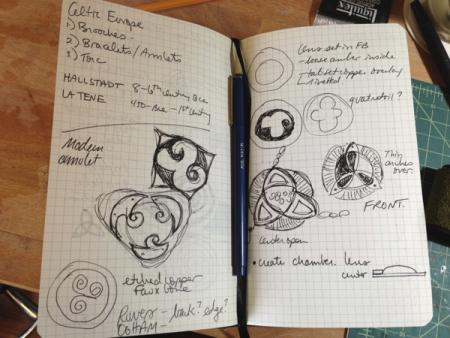 Celtic Europe
1) Brooches -
2) Bracelets/Armlets
3) Torc
HALLSTADT 8-6th Century BCE
LA TENE 450-BCE - 1st Century
Modern
amulet
etched copper
Faux bone
Runes - back? edge?
OGHAM -
liquitex
Lens set in FB
- loose amber inside
tabset copper overlay
/ rivetted
quatrefoil?
Thin
arches
over.
FRONT.
Center open
• create chamber. lens
center